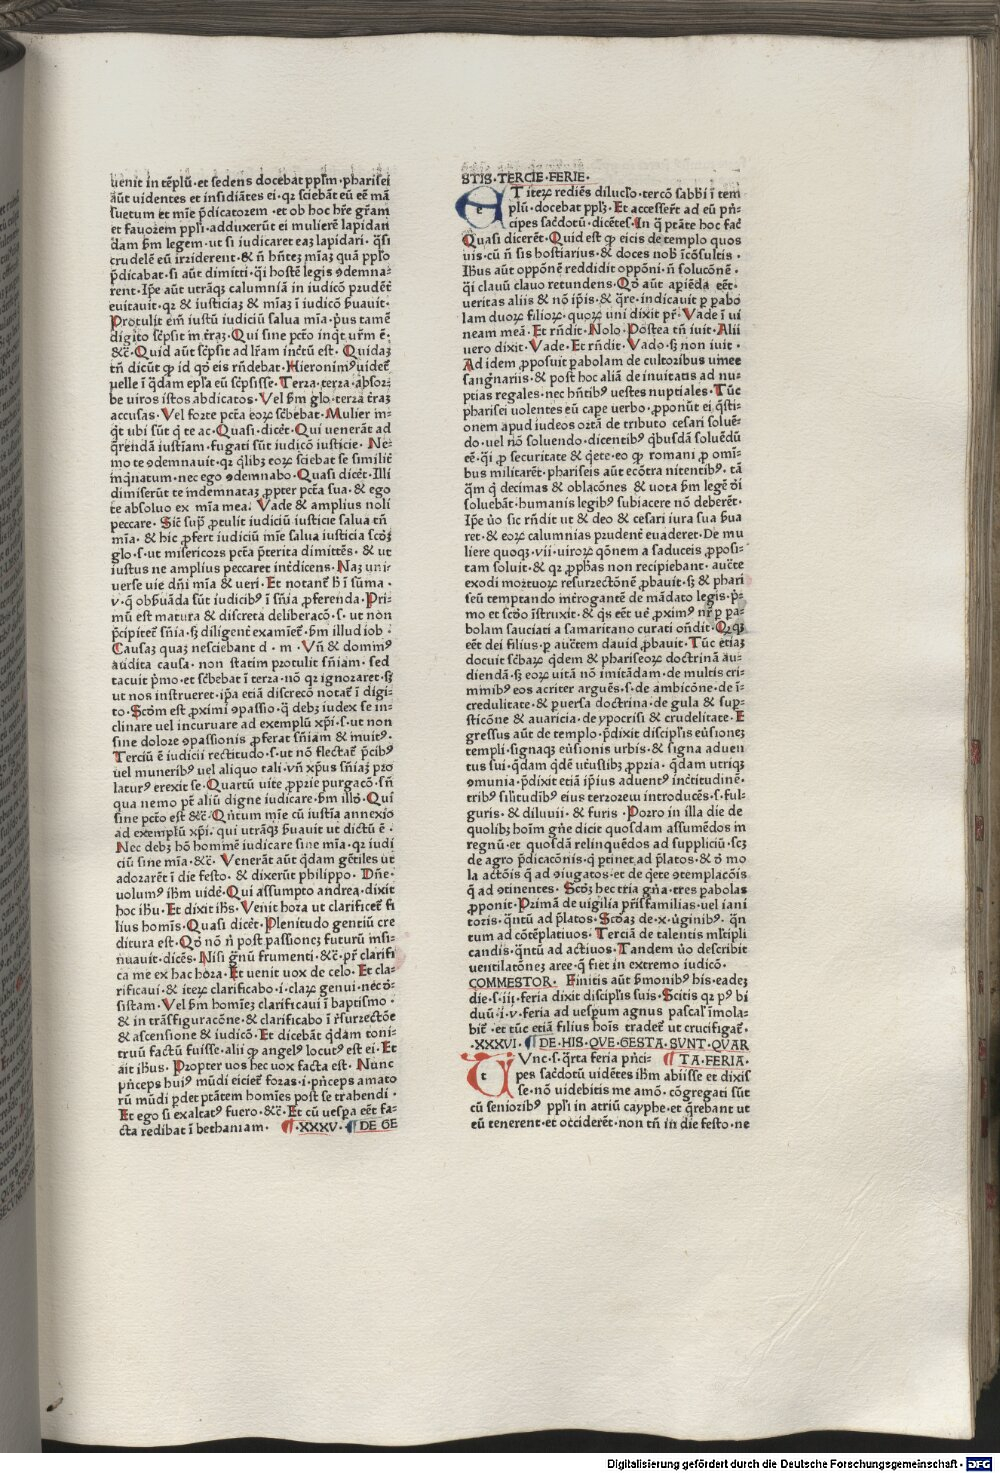 uenit in tēplū·et sedens docebāt ppłm·pharisei
aūt uidentes et insidiātes ei·qꝛ sciebāt eū eē mā
suetum et mīe p̄dicatorem·et ob hoc hr̄e gr̄am
et fauorem ppłi·adduxerūt ei mulierē lapidari
dam ꝑm legem·ut si iudicaret eaꝫ lapidari·q̄si
crudelē eū irriderent·& n̄ hn̄teꝫ mīaꝫ quā ppło
p̄dicabat·si aūt dimitti·q̄i hostē legis ꝯdemna-
rent·Ip̄e aūt utrāqꝫ calumniā in iudicō prudēt̄
euitauit·qꝛ & iusticiaꝫ & mīaꝫ ī iudicō ẜuauit·
Protulit em̄ iustū iudiciū salua mīa·p̄us tamē
digito sc̄psit in tr̄aꝫ·Qui sine pctō inqt̄ ur̄m ē·
&c̄·Quid aūt sc̄psit ad lr̄am inc̄tū est·Quidaꝫ
tn̄ dicūt ꝙ id qō eis rn̄debat·Hieronimꝰ uidet̄
uelle ī q̄dam epł̄a eū sc̄psisse·Terra·terra·absor-
be uiros istos abdicatos·Vel ẜm glo·terra tr̄aꝫ
accusas·Vel forte pctā eoꝝ sc̄bebat·Mulier in-
q̄t ubi sūt q̄ te ac·Quasi·dicēt·Qui uenerāt ad
q̄rendā iustīam·fugati sūt iudicō iusticie·Ne-
mo te ꝯdemnauit·qꝛ q̄libꝫ eoꝝ sciebat se similiē
inq̄natum·nec ego ꝯdemnabo·Quasi dicēt·Illi
dimiserūt te indemnataꝫ ꝓpter pctā sua·& ego
te absoluo ex mīa mea·Vade & amplius noli
peccare·Sic̄ sup̄ ꝓtulit iudiciū iusticie salua tn̄
mīa·& hic ꝓfert iudiciū mīe salua iusticia scd̄ꝫ
glo·s·ut misericors pctā p̄terita dimittēs·& ut
iustus ne amplius peccaret int̄dicens·Naꝫ uni-
uerse uie dn̄i mīa & ueri·Et notant̄ h̄ ī sūma·
v·q̄ obẜuāda sūt iudicibꝰ ī sn̄ia ꝓferenda·Pri-
mū est matura & discreta deliberacō·s·ut non
p̄cipitet̄ sn̄ia·sꝫ diligent̄ examiet̄·ẜm illud iob·
Causaꝫ quaꝫ nesciebam d·m·Vn̄ & dominꝰ
audita causa·non statim protulit sn̄iam·sed
tacuit p̄mo·et sc̄bebat ī terra·nō qꝛ ignoraret·sꝫ
ut nos instrueret·ip̄a etiā discrecō notat̄ ī digi-
to·Scd̄m est ꝓximi ꝯpassio·q̄ debꝫ iudex se in-
clinare uel incuruare ad exemplū xp̄i·s·ut non
sine dolore ꝯpassionis ꝓferat sn̄iam & muitꝰ·
Terciū ē iudicii rectitudo·s·ut nō flectat̄ p̄cibꝰ
uel muneribꝰ uel aliquo tali·vn̄ xp̄us sn̄iaꝫ pro
laturꝰ erexit se·Quartū uite ꝓprie purgacō·sn̄
qua nemo pt̄ aliū digne iudicare·ẜm illō·Qui
sine pctō est &c̄·Qn̄tum mīe cū iustīa annexio
ad exemplū xp̄i·qui utrāqꝫ ẜuauit ut dictū ē·
Nec debꝫ hō hominē iudicare sine mīa·qꝛ iudi
ciū sine mīa·&c̄·Venerāt aūt q̄dam gētiles ut
adorarēt ī die festo·& dixerūt philippo·Dn̄e·
uolumꝰ ihm̄ uidē·Qui assumpto andrea·dixit
hoc ihū·Et dixit ihs̄·Venit hora ut clarificet̄ fi
lius homīs·Quasi dicēt·Plenitudo gentiū cre
ditura est·Qō nō n̄ post passioneꝫ futurū insi-
nuauit·dicēs·Nisi gnū frumenti·&c̄·pr̄ clarifi
ca me ex hac hora·Et uenit uox de celo·Et cla-
rificaui·& iteꝝ clarificabo·i·claꝝ genui·nec d̄-
sistam·Vel ẜm homīeꝫ clarificaui ī baptismo·
& in trāsfiguracōne·& clarificabo ī r̄surrectōe
& ascensione & iudicō·Et dicebāt q̄dam toni-
truū factū fuisse·alii ꝙ angelꝰ locutꝰ est ei·Et
ait ihūs·Propter uos hec uox facta est·Nunc
p̄nceps huiꝰ mūdi eiciet̄ foras·i·p̄nceps amato
rū mūdi ꝑdet ptātem homīes post se trahendi·
Et ego si exaltatꝰ fuero·&c̄·Et cū uesꝑa eēt fa-
cta redibat ī bethaniam·¶·XXXV·¶DE GE
STIS·TERCIE·FERIE·
ET iteꝝ rediēs dilucƚo·tercō sabb̄i ī tem
plū·docebat ppłꝫ·Et accesser̄t ad eū p̄n-
cipes sac̄dotū·dicētes·In q̄ ptāte hoc fac̄
Quasi dicerēt·Quid est ꝙ eicis de templo quos
uis·cū n̄ sis hostiarius·& doces nob̄ īcōsultis·
Ihūs aūt oppōnē reddidit oppōni·n̄ solucōnē·
q̄i clauū clauo retundens·Qō aūt apiēda eēt·
ueritas aliis & nō ip̄is·& q̄re·indicauit ꝑ parabo
lam duoꝝ filioꝝ·quoꝝ uni dixit pr̄·Vade ī ui
neam meā·Et rn̄dit·Nolo·Postea tn̄ iuit·Alii
uero dixit·Vade·Et rn̄dit·Vado·sꝫ non iuit·
Ad idem ꝓposuit ꝑabolam de cultoribus uinee
sangn̄ariis·& post hoc aliā de inuitatis ad nu-
ptias regales·nec hn̄tibꝰ uestes nuptiales·Tūc
pharisei uolentes eū cape uerbo·ꝓponūt ei q̄sti-
onem apud iudeos ortā de tributo cesari soluē-
do·uel nō soluendo·dicentibꝰ q̄busdā soluēdū
eē·q̄i ꝓ securitate & q̄ete·eo ꝙ romani ꝓ omi-
bus militarēt·phariseis aūt ecōtra nitentibꝰ·tā
q̄m q̄ decimas & oblacōnes & uota ẜm legē d̄i
soluebāt·humanis legibꝰ subiacere nō deberēt·
Ip̄e ūo sic rn̄dit ut & deo & cesari iura sua ẜua
ret·& eoꝝ calumnias prudent̄ euaderet·De mu
liere quoqꝫ·vii·uiroꝝ qōnem a saduceis ꝓposi-
tam soluit·& qꝛ ꝓpħas non recipiebant·auctē
exodi mortuoꝝ resurrectōnē ꝓbauit·sꝫ & phari
seū temptando int̄rogantē de mādato legis·p̄-
mo et scd̄o īstruxit·& q̄s eēt uē ꝓximꝰ nr̄ ꝑ pa-
bolam sauciati a samaritano curati ond̄it·Qꝛqꝫ
eēt dei filius·ꝑ auctēm dauid ꝓbauit·Tūc etiaꝫ
docuit sc̄baꝝ q̄dem & phariseoꝝ doctrinā au-
diendā·sꝫ eoꝝ uitā nō imitādam·de multis cri-
minibꝰ eos acriter arguēs·s·de ambicōne·de ī-
credulitate & puersa doctrina·de gula & sup-
sticōne & auaricia·de ypocrisi & crudelitate·E
gressus aūt de templo·p̄dixit disciplīs eūsioneꝫ
templi·signaqꝫ eūsionis urbis·& signa aduen
tus sui·q̄dam q̄dē utustibꝫ ꝓpria·q̄dam utriqꝫ
ꝯmunia·p̄dixit etiā ip̄ius aduentꝰ inc̄titudinē·
tribꝰ siƚitudībꝰ eius terrorem introducēs·s·ful-
guris·& diluuii·& furis·Porro in illa die de
quolibꝫ hoīm gn̄e dicit quosdam assumēdos in
regnū·et quosdā relinquēdos ad suppliciū·scꝫ
de agro p̄dicacōnis·q̄ ꝑtinet ad p̄latos·& d̄ mo
la actōis q̄ ad ꝯiugatos·et de q̄ete ꝯtemplacōis
q̄ ad ꝯtinentes·Scd̄ꝫ hec tria gn̄a·tres pabolas
ꝓponit·Primā de uigilia pr̄isfamilias·uel iani
toris·q̄ntū ad p̄latos·Scd̄aꝫ de·x·ūginibꝰ·q̄n
tum ad cōtēplatiuos·Terciā de talentis mƚtipli
candis·q̄ntū ad actiuos·Tandem ūo describit
uentilatōneꝫ aree·q̄ fiet in extremo iudicō·
COMMESTOR·Finitis aūt ẜmonibꝰ his·eadeꝫ
die·s·iii·feria dixit disciplīs suis·Scitis qꝛ pꝰ bi
duū·i·v·feria ad uesꝑum agnus pascaƚ īmola-
bit̄·et tūc etiā filius hoīs tradet̄ ut crucifigat̄·
·XXXVI·¶DE·HIS·QVE·GESTA·SVNT·QVAR
TVnc·s·q̄rta feria p̄nci-¶TA·FERIA·
pes sac̄dotū uidētes ihm̄ abiisse et dixis
se·nō uidebitis me amō·cōgregati sūt
cū senioribꝰ ppłi in atriū cayphe·et q̄rebant ut
eū tenerent·et occiderēt·non tn̄ in die festo·ne
Digitalisierung gefördert durch die Deutsche Forschungsgemeinschaft - DFG